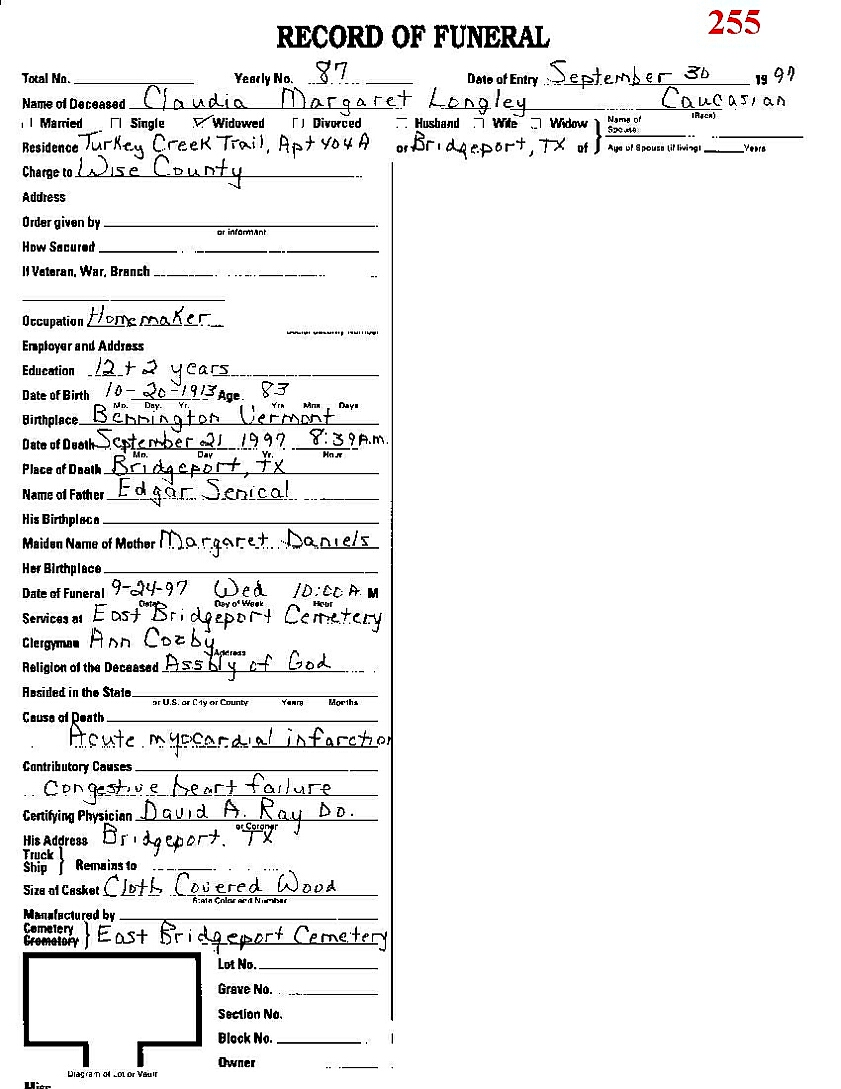 255
RECORD OF FUNERAL
Total No. Yearly No. 87 Date of Entry September 30 1997
Name of Deceased Claudia Margaret Longley Caucasian
(Race)
Married Single Widowed Divorced Husband Wife Widow Name of Spouse:
Residence Turkey Creek Trail, Apt 404A or Bridgeport, TX of Age of Spouse (if living) Years
Charge to Wise County
Address
Order given by
or informant
How Secured
If Veteran, War, Branch
Occupation Homemaker
Social Security Number
Employer and Address
Education 12 + 2 years
Date of Birth 10-20-1913 Age 83
Mo. Day. Yr. Yrs Mos Days
Birthplace Bennington Vermont
Date of Death September 21 1997 8:39 A.M.
Mo. Day Yr. Hour
Place of Death Bridgeport, TX
Name of Father Edgar Senical
His Birthplace
Maiden Name of Mother Margaret Daniels
Her Birthplace
Date of Funeral 9-24-97 Wed 10:00 A. M
Date Day of Week Hour
Services at East Bridgeport Cemetery
Clergyman Ann Cozby
Address
Religion of the Deceased Assbly of God
Resided in the State
or U.S. or City or County Years Months
Cause of Death
Acute myocardial infarction
Contributory Causes
Congestive heart failure
Certifying Physician David A. Ray DO.
or Coroner
His Address Bridgeport, TX
Truck
Ship Remains to
Size of Casket Cloth Covered Wood
State Color and Number
Manufactured by
Cemetery
Crematory East Bridgeport Cemetery
Lot No.
Grave No.
Section No.
Block No.
Owner
Diagram of Lot or Vault